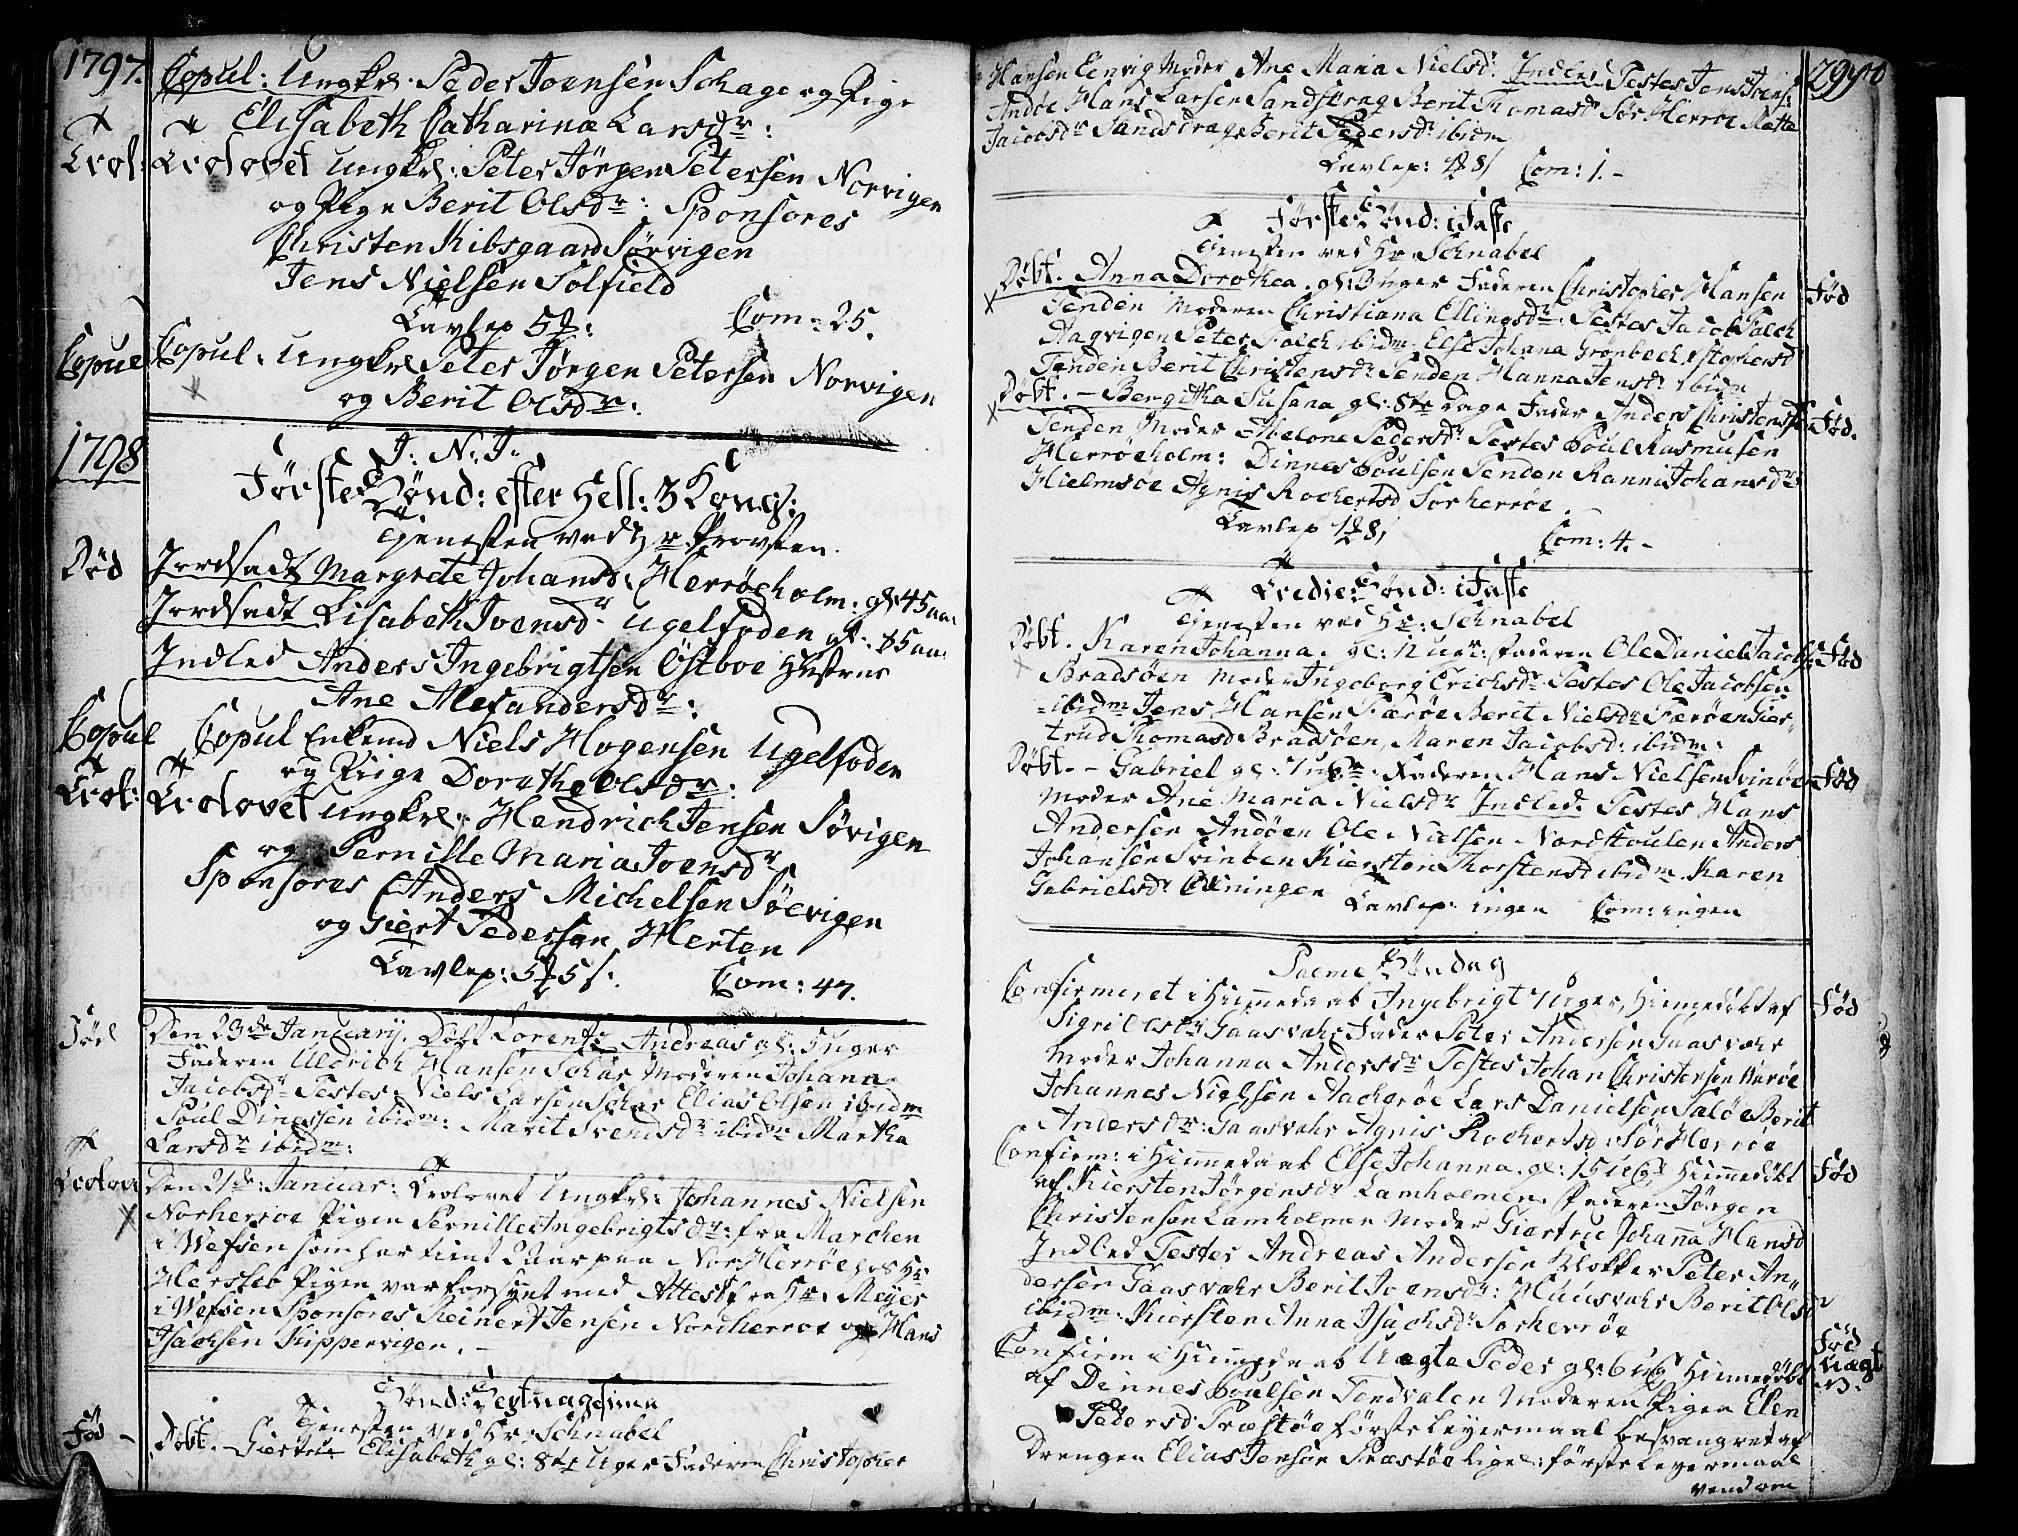 1797.
Copul: Ungkl. Peder Joensen Schage og Pige
Elisabeth Catharina Larsdr:
Trol: Trolovet Ungkl: Peter Jørgen Petersen Norvigen
og Pige Berit Olsdr: Sponsores
Christen Kibsgaard Sørvigen
Jens Nielsen Solfield
Tavlep 5 Com: 25.
Copul Copul. Ungkl Peter Jørgen Petersen Norvigen
og Berit Olsdr:
1798
J. N. J.
Første Sønd: efter Hell: 3 Kong:
Tjenesten ved Hr Provsten.
Død Jordsadt Margrete Johansd: Herrøeholm: gl: 45 aar
Jordsadt Lisabeth Joensdr Ugelfoden gl. 85 aar
Indled Anders Ingebrigtsen Østboe Hustrue
Ane Alexandersdr:
Copul Copul Enkemd Niels Hogensen Ugelfoden
og Piige Dorathe Olsdr:
Trol: Trolovet Ungkl. Hendrich Jensen Sørigen
og Pernille Maria Joensdr
Sponsores Anders Michelsen Søevigen
og Giert Pedersen Herten
Tavlep: 5 5 s. Com: 47.
Fød Den 23de Januarij. Døbt Lorentz Andreas gl: 5 Uger
Faderen Uldrich Hansen Schar Moderen Johana
Jacobsdr Testes Niels Larsen Schar Elias Olsen ibidm
Poul Dinessen ibidm: Marit Svendsdr ibidm Martha
Larsdr ibidm:
Trolov Den 21de: Januar: Trolovet Ungkl: Johannes Nielsen
Norherrøe Pigen Pernille Ingebrigtsdr: fra Marchen
i Wefsen som har tient 2 aar paa Nor Herrøe hos Hr
Hersleb Pigen var forsynt med Attest fra Hr. Meyer
i Wefsen Sponsores Reinert Jensen Nordherroe og Hans
Isachsen Kippervigen. -
Sønd: Septuagesima
Tjenesten ved Hr. Schnabel
Fød - Døbt. - Giertru Elisabeth gl: 8te Uger Faderen Christopher
Hansen Eenvig Moder Ane Maria Nielsdr. Indled Testes Jens Joens:
Andøe Hans Larsen Sandstrag Berit Thomasdr Sør Herrøe Mette
Jacobsdr Sandsdrag Berit Pedersdr ibidm
Tavlep: 8 s Com: 1. -
Første Sønd: i Faste
Tjenesten ved Hr Schnabel
Døbt. Anna Dorothea. gl: 3 Uger Faderen Christopher Hansen Fød
Tenden Moderen Christiana Ellingsdr: Testes Jacob Falch
Aagvigen Peter Falch ibidm. Else Johana Grønbech Stophersd
Tenden Berit Christensdr Tenden Hanna Jensdr ibidm
Døbt. - Bergitha Susana gl: 8te Dage Fader Anders Christensen Fød.
Tenden Moder Abelone Pedersdr Testes Poul Rasmusen
Herrøeholm: Dinnes Poulsen Tenden Ranni Johansdr
Hielmsøe Agnis Rochertsd Sørherrøe.
Tavlep 8 s Com: 4. -
Tredie Sønd: i Faste
Tjenesten ved Hr: Schnabel
Døbt. Karen Johanna. gl: 12 Ugr: Faderen Ole Daniel Jacobs: Fød
Bradsøen Moder Ingeborg Erichsdr Testes Ole Jacobsen
ibidm Jens Hansen Færøe Berit Nielsdr Færøen Gier-
trud Thomasd Bradsøen, Maren Jacobsd: ibidm:
Døbt. - Gabriel gl: 7 Ugr: Faderen Hans Nielsen Svinøen Fød
Moder Ane Maria Nielsdr Indled. Testes Hans
Andersen Andøen Ole Nielsen Nordstoulen Anders
Johansen Svinøen Kiersten Thorstensd ibidm Karen
Gabrielsdr Tavlep: ingen Com: ingen
Palme Søndag
Confirmeret i Hiemmedaab Ingebrigt 7 Uger, Hiemedøbt af Fød
Sigri Olsdr Gaasvahr Fader Peter Andersen Gaasvahr
Moder Johanna Andersdr Testes Johan Christensen
Johannes Nielsen Aacherøe Lars Danielsen Saløe Berit
Andersdr: Gaasvahr Agnis Rochertsd: Sør Herrøe
Confirm: i Hiemmedaab Else Johanna. gl: 15 Ug: Hiemmedøbt Fød
af Kiersten Jørgensdr Lamholmen. Faderen Jørgen
Christensen Lamholmen Moder Giertru Johanna Hansd
Indled Testes Andreas Andersen Klokker Peter An-
dersen Gaasvahr Berit Joensdr: Huusvahr Berit Olsd
ibidm. Kiersten Anna Isachsdr Sørherrøe
Confirm i Hiemmedaab Uægte Peder gl: 6 Ug Hiemedøbt Fød Uægt
af Dinnes Poulsen Tendvalen Moderen Pigen Elen
Pedersd. Præstøe første Leyermaal besvangret af
Drengen Elias Jensen Præstøe lige: første Leyermaal
vend om